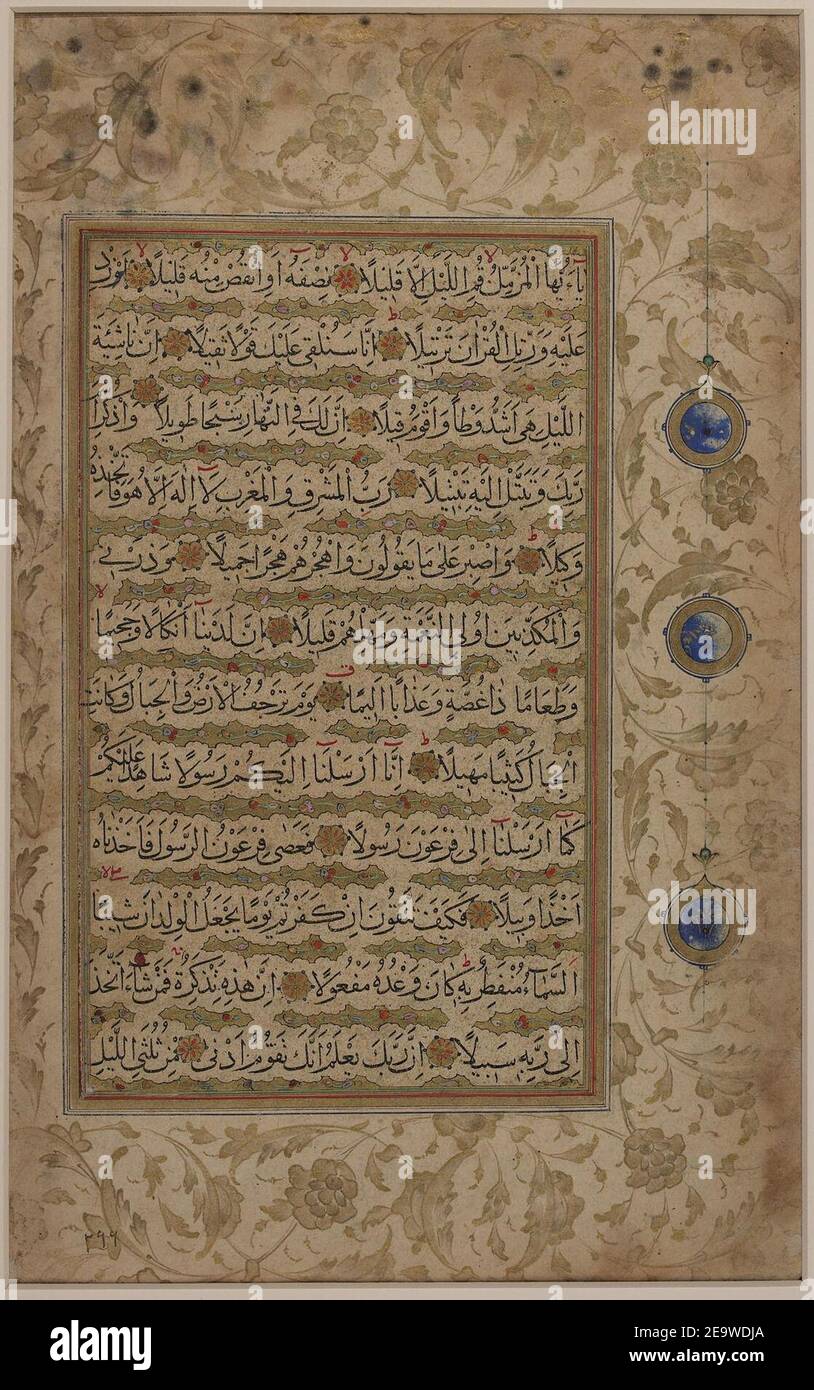 يَاأَيُّهَا الْمُزَّمِّلُ قُمِ اللَّيْلَ إِلَّا قَلِيلًا نِصْفَهُ أَوِ انْقُصْ مِنْهُ قَلِيلًا أَوْ زِدْ
عَلَيْهِ وَرَتِّلِ الْقُرْاٰنَ تَرْتِيلًا اِنَّا سَنُلْقِي عَلَيْكَ قَوْلًا ثَقِيلًا اِنَّ نَاشِئَةَ
اللَّيْلِ هِيَ اَشَدُّ وَطْأً وَاَقْوَمُ قِيلًا اِنَّ لَكَ فِي النَّهَارِ سَبْحًا طَوِيلًا وَاذْكُرِ ا
رَبِّكَ وَتَبَتَّلْ اِلَيْهِ تَبْتِيلًا رَبُّ الْمَشْرِقِ وَالْمَغْرِبِ لَا اِلٰهَ اِلَّا هُوَ فَاتَّخِذْهُ
وَكِيلًا وَاصْبِرْ عَلٰى مَا يَقُولُونَ وَاهْجُرْهُمْ هَجْرًا جَمِيلًا وَذَرْنِي
وَالْمُكَذِّبِينَ اُولِي النَّعْمَةِ وَمَهِّلْهُمْ قَلِيلًا اِنَّ لَدَيْنَا اَنْكَالًا وَجَحِيمًا
وَطَعَامًا ذَا غُصَّةٍ وَعَذَابًا اَلِيمًا يَوْمَ تَرْجُفُ الْاَرْضُ وَالْجِبَالُ وَكَانَتِ
الْجِبَالُ كَثِيبًا مَهِيلًا اِنَّا اَرْسَلْنَا اِلَيْكُمْ رَسُولًا شَاهِدًا عَلَيْكُمْ
كَمَا اَرْسَلْنَا اِلٰى فِرْعَوْنَ رَسُولًا فَعَصٰى فِرْعَوْنُ الرَّسُولَ فَاَخَذْنَاهُ
اَخْذًا وَبِيلًا فَكَيْفَ تَتَّقُونَ اِنْ كَفَرْتُمْ يَوْمًا يَجْعَلُ الْوِلْدَانَ شِيبًا
اَلسَّمَاءُ مُنْفَطِرٌ بِهِ كَانَ وَعْدُهُ مَفْعُولًا اِنَّ هٰذِهِ تَذْكِرَةٌ فَمَنْ شَاءَ اتَّخَذَ
اِلٰى رَبِّهِ سَبِيلًا اِنَّ رَبَّكَ يَعْلَمُ اَنَّكَ تَقُومُ اَدْنٰى مِنْ ثُلُثَيِ اللَّيْلِ
٢٩٦
alamy
alamy
Image ID: 2E9WDJA
www.alamy.com